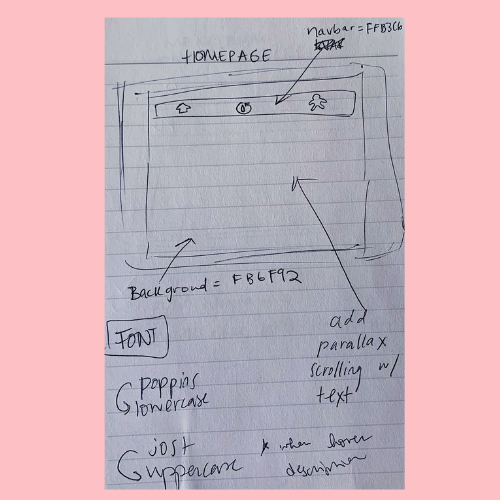 navbar = FFB3C6
HOMEPAGE
Background = FB6F92
add
parallax
scrolling w/
text
FONT
poppins
lowercase
jost
uppercase
* when hover
description